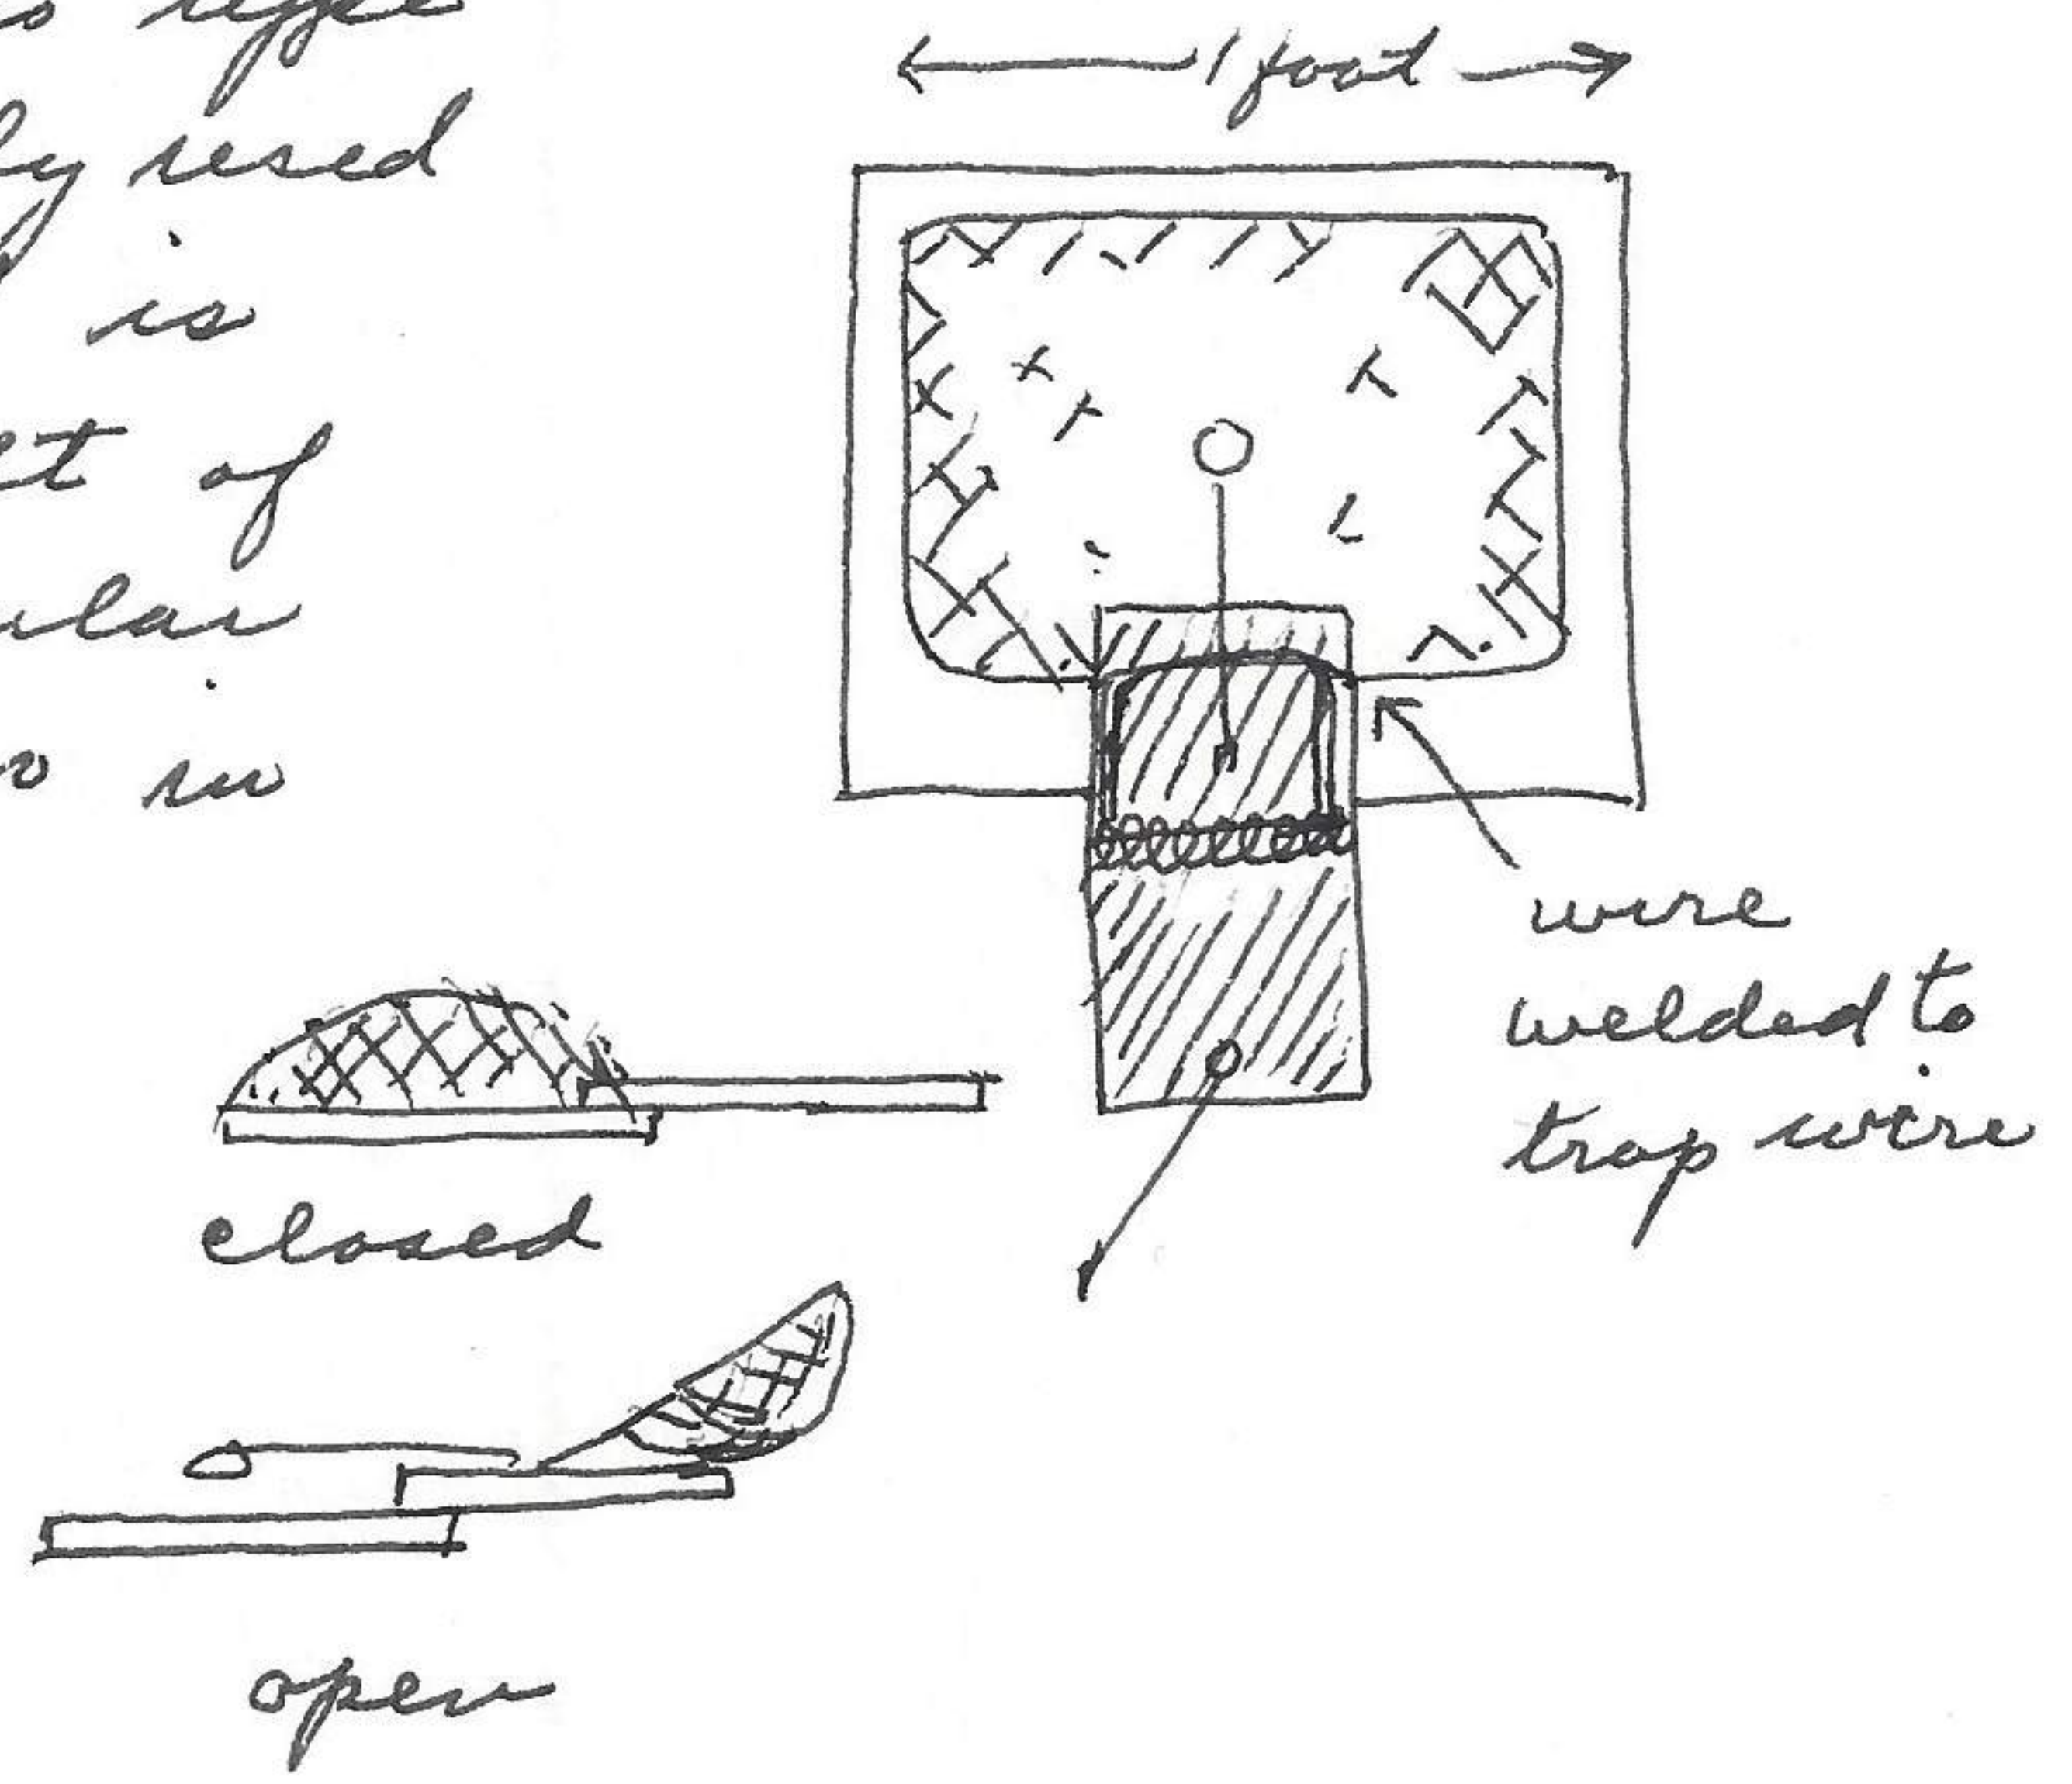 type
by used
is
et of
ular
in
1 foot
wire
welded to
trap wire
closed
open